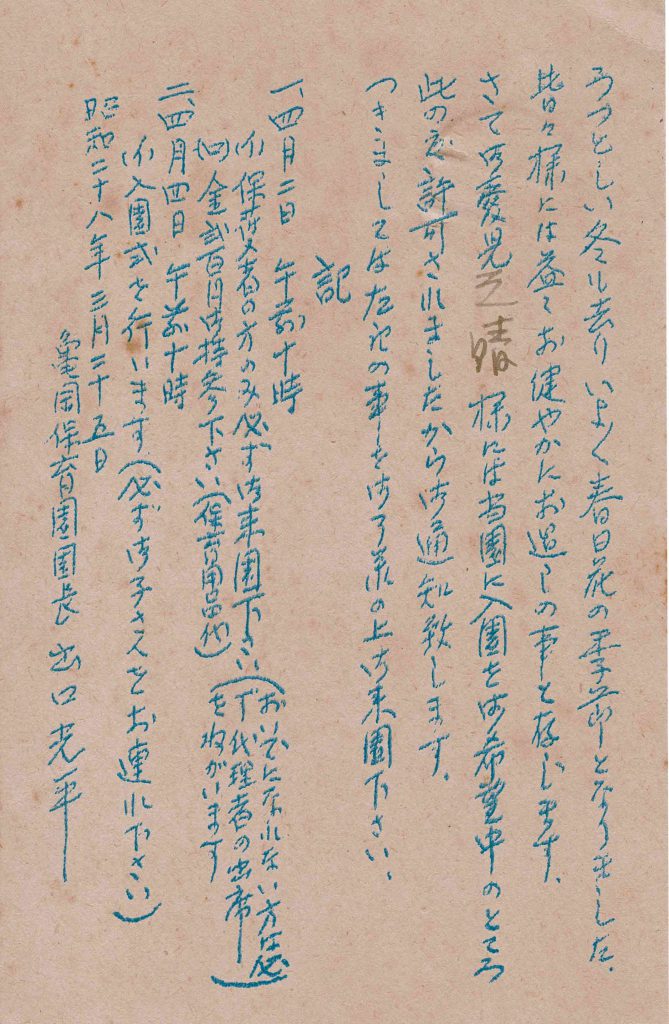 うつとしい冬は去りいよく春日花の季節となりました。
皆々様には益々お健やかにお過しの事と存じます。
さて御愛児 晴 様には当園に入園を御希望中のところ
此の度許可されましたから御通知致します。
つきましては左記の事を御了承の上御来園下さい。
記
一、四月二日 午前十時
(イ)保護者の方のみ必ず御来園下さい(お出になれない方は必
ず代理者の出席
を願がいます)
(ロ)金弐百円御持参下さい(保育用品代)
二、四月四日 午前十時
(イ)入園式を行います(必ず御子さんをお連れ下さい)
昭和二十八年三月二十五日
亀岡保育園園長 出口光平